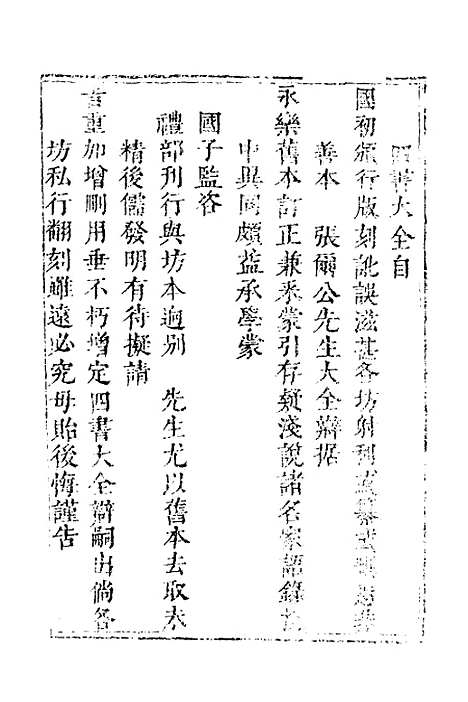 四書大全自
國初頒行版刻訛誤滋甚各坊射利
善本　張爾公先生大全辯据
永樂舊本訂正兼采蒙引存疑淺說諸名家語錄
中異同頗益承學蒙
國子監咨
禮部刊行與坊本逈別　先生尤以舊本去取未
精後儒發明有待擬請
旨重加增刪用垂不朽增定四書大全辯嗣出倘各
坊私行翻刻雖遠必究毋貽後悔謹告